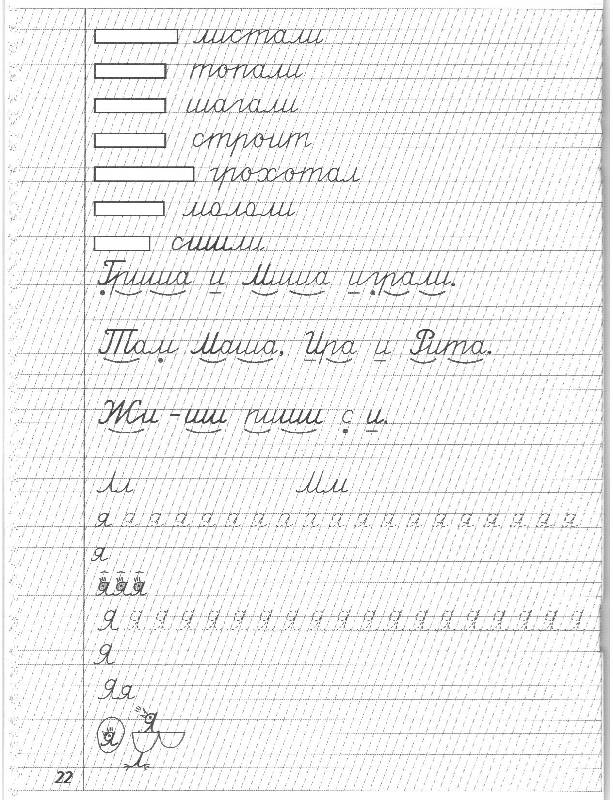 листали
топали
шагали
строит
грохотал
мололи
сшили
Гриша и Миша играли.
Там Маша, Ира и Рита.
Жи -ши пиши с и.
Лл Мм
я я я я я я я я я я я я я я я я я я я
я
я я я
Я Я Я Я Я Я Я Я Я Я Я Я Я Я Я Я Я Я Я
Я
Яя
Я
я
22